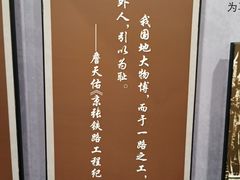 我国地大物博，而于一路之工，
外人，引以为耻。
——詹天佑《京张铁路工程纪
为